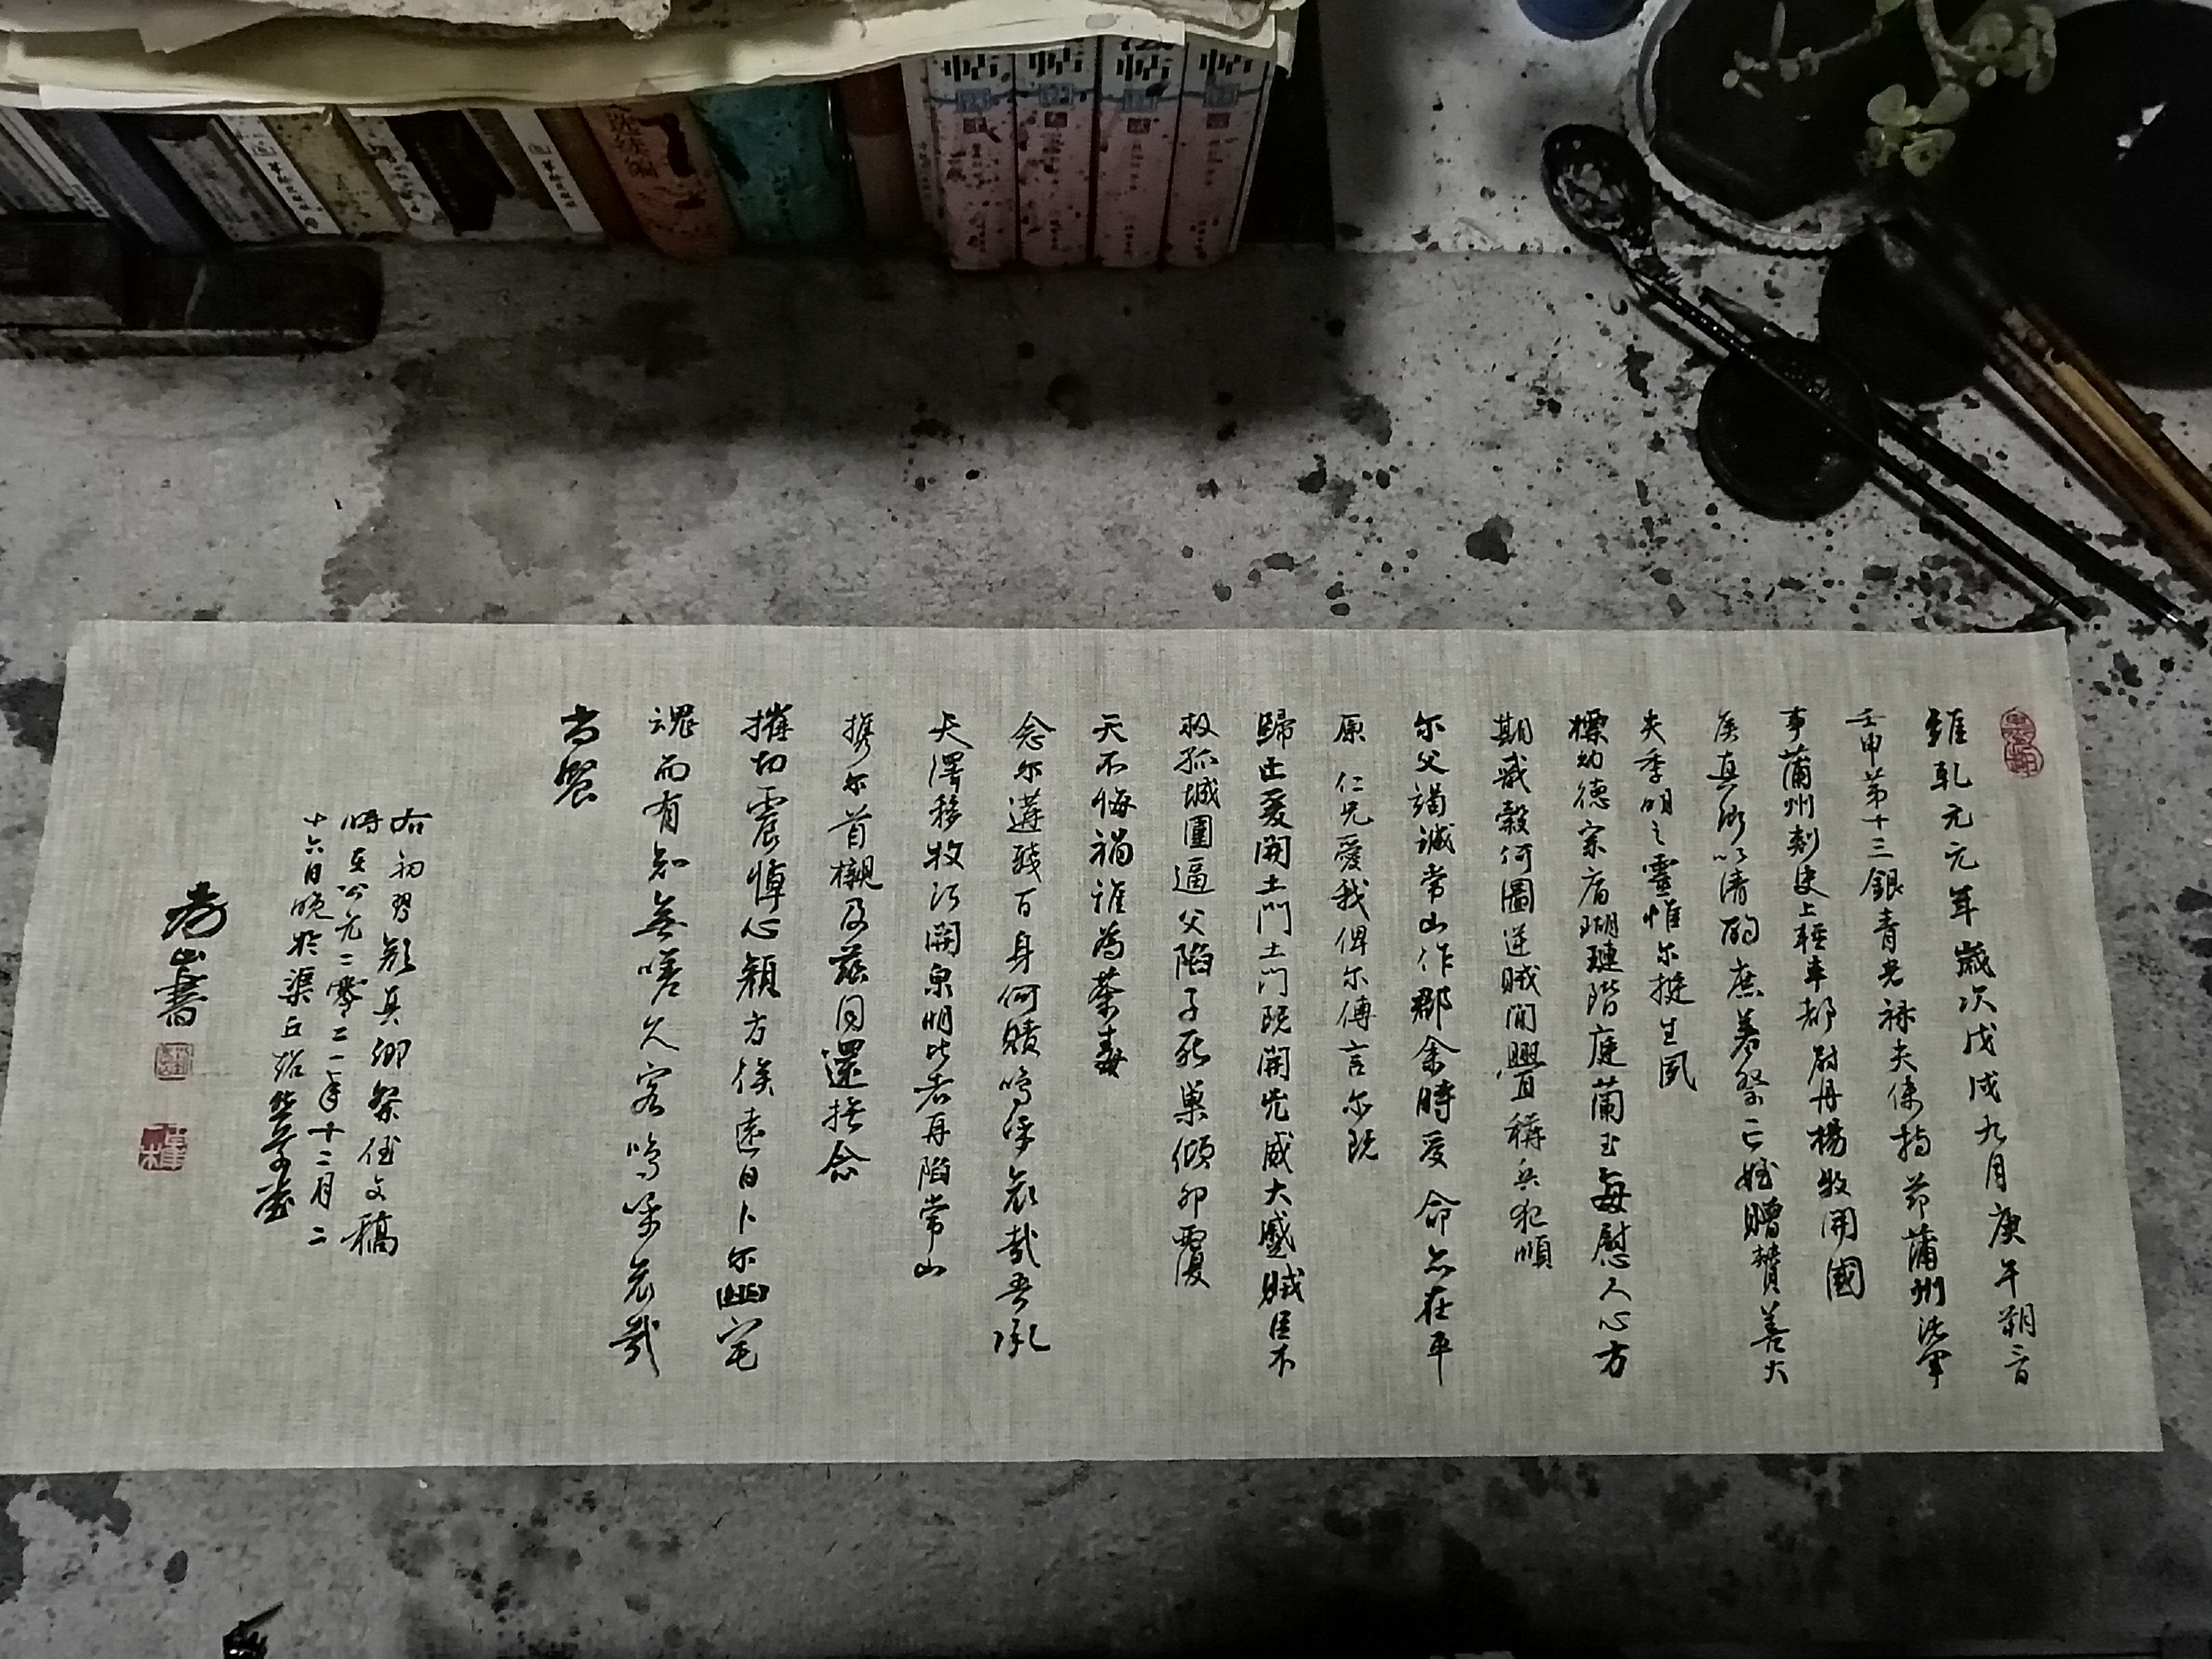 維乾元元年歲次戊戌九月庚午朔三日
壬申第十三銀青光祿夫使持節蒲州諸軍
事蒲州刺史上輕車都尉丹楊縣開國
侯真卿以清酌庶羞祭亡姪贈贊善大
夫季明之靈惟尔挺生夙
標幼德宗廟瑚璉階庭蘭玉每慰人心方
期戩穀何圖逆賊間釁稱兵犯順
尔父竭誠常山作郡余時受命亦在平
原仁兄愛我俾尔傳言尔既
歸止爰開土門土門既開凶威大蹙賊臣不
救孤城圍逼父陷子死巢傾卵覆
天不悔禍誰為荼毒
念尔遘殘百身何贖嗚呼哀哉吾承
天澤移牧河關泉明比者再陷常山
攜尔首櫬及茲同還撫念
摧切震悼心顏方俟遠日卜尔幽宅
魂而有知無嗟久客嗚呼哀哉
尚饗
右初習顏真卿祭侄文稿
時在公元二零二一年十二月二
十六日晚於渠丘
山書